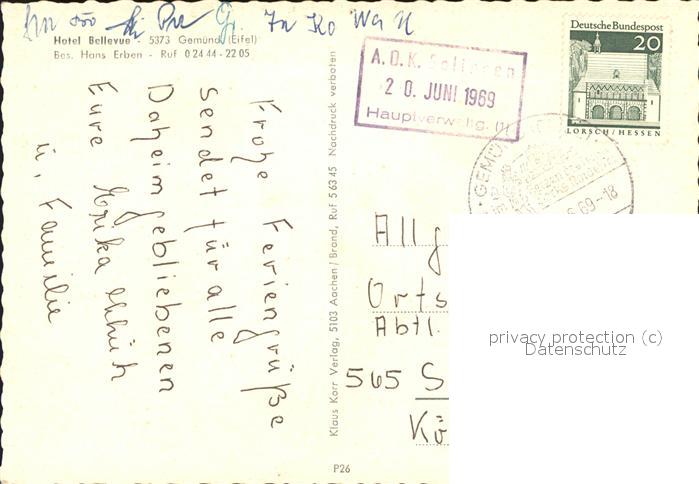 Ko
Hotel Bellevue - 5373 Gemünd (Eifel)
Bes. Hans Erben - Ruf 0 24 44 - 22 05
Frohe Feriengrüße
sendet für alle
Daheimgebliebenen
Eure Erika
u. Familie
Klaus Korr Verlag, 5103 Aachen/Brand, Ruf 5 63 45 Nachdruck verboten
P26
A.O.K. Solingen
20. JUNI 1969
Hauptverwltg. (1)
Deutsche Bundespost
20
LORSCH/HESSEN
GEMÜ
6.69-18
Allg
Orts
Abtl.
565 S
Kö
privacy protection (c)
Datenschutz